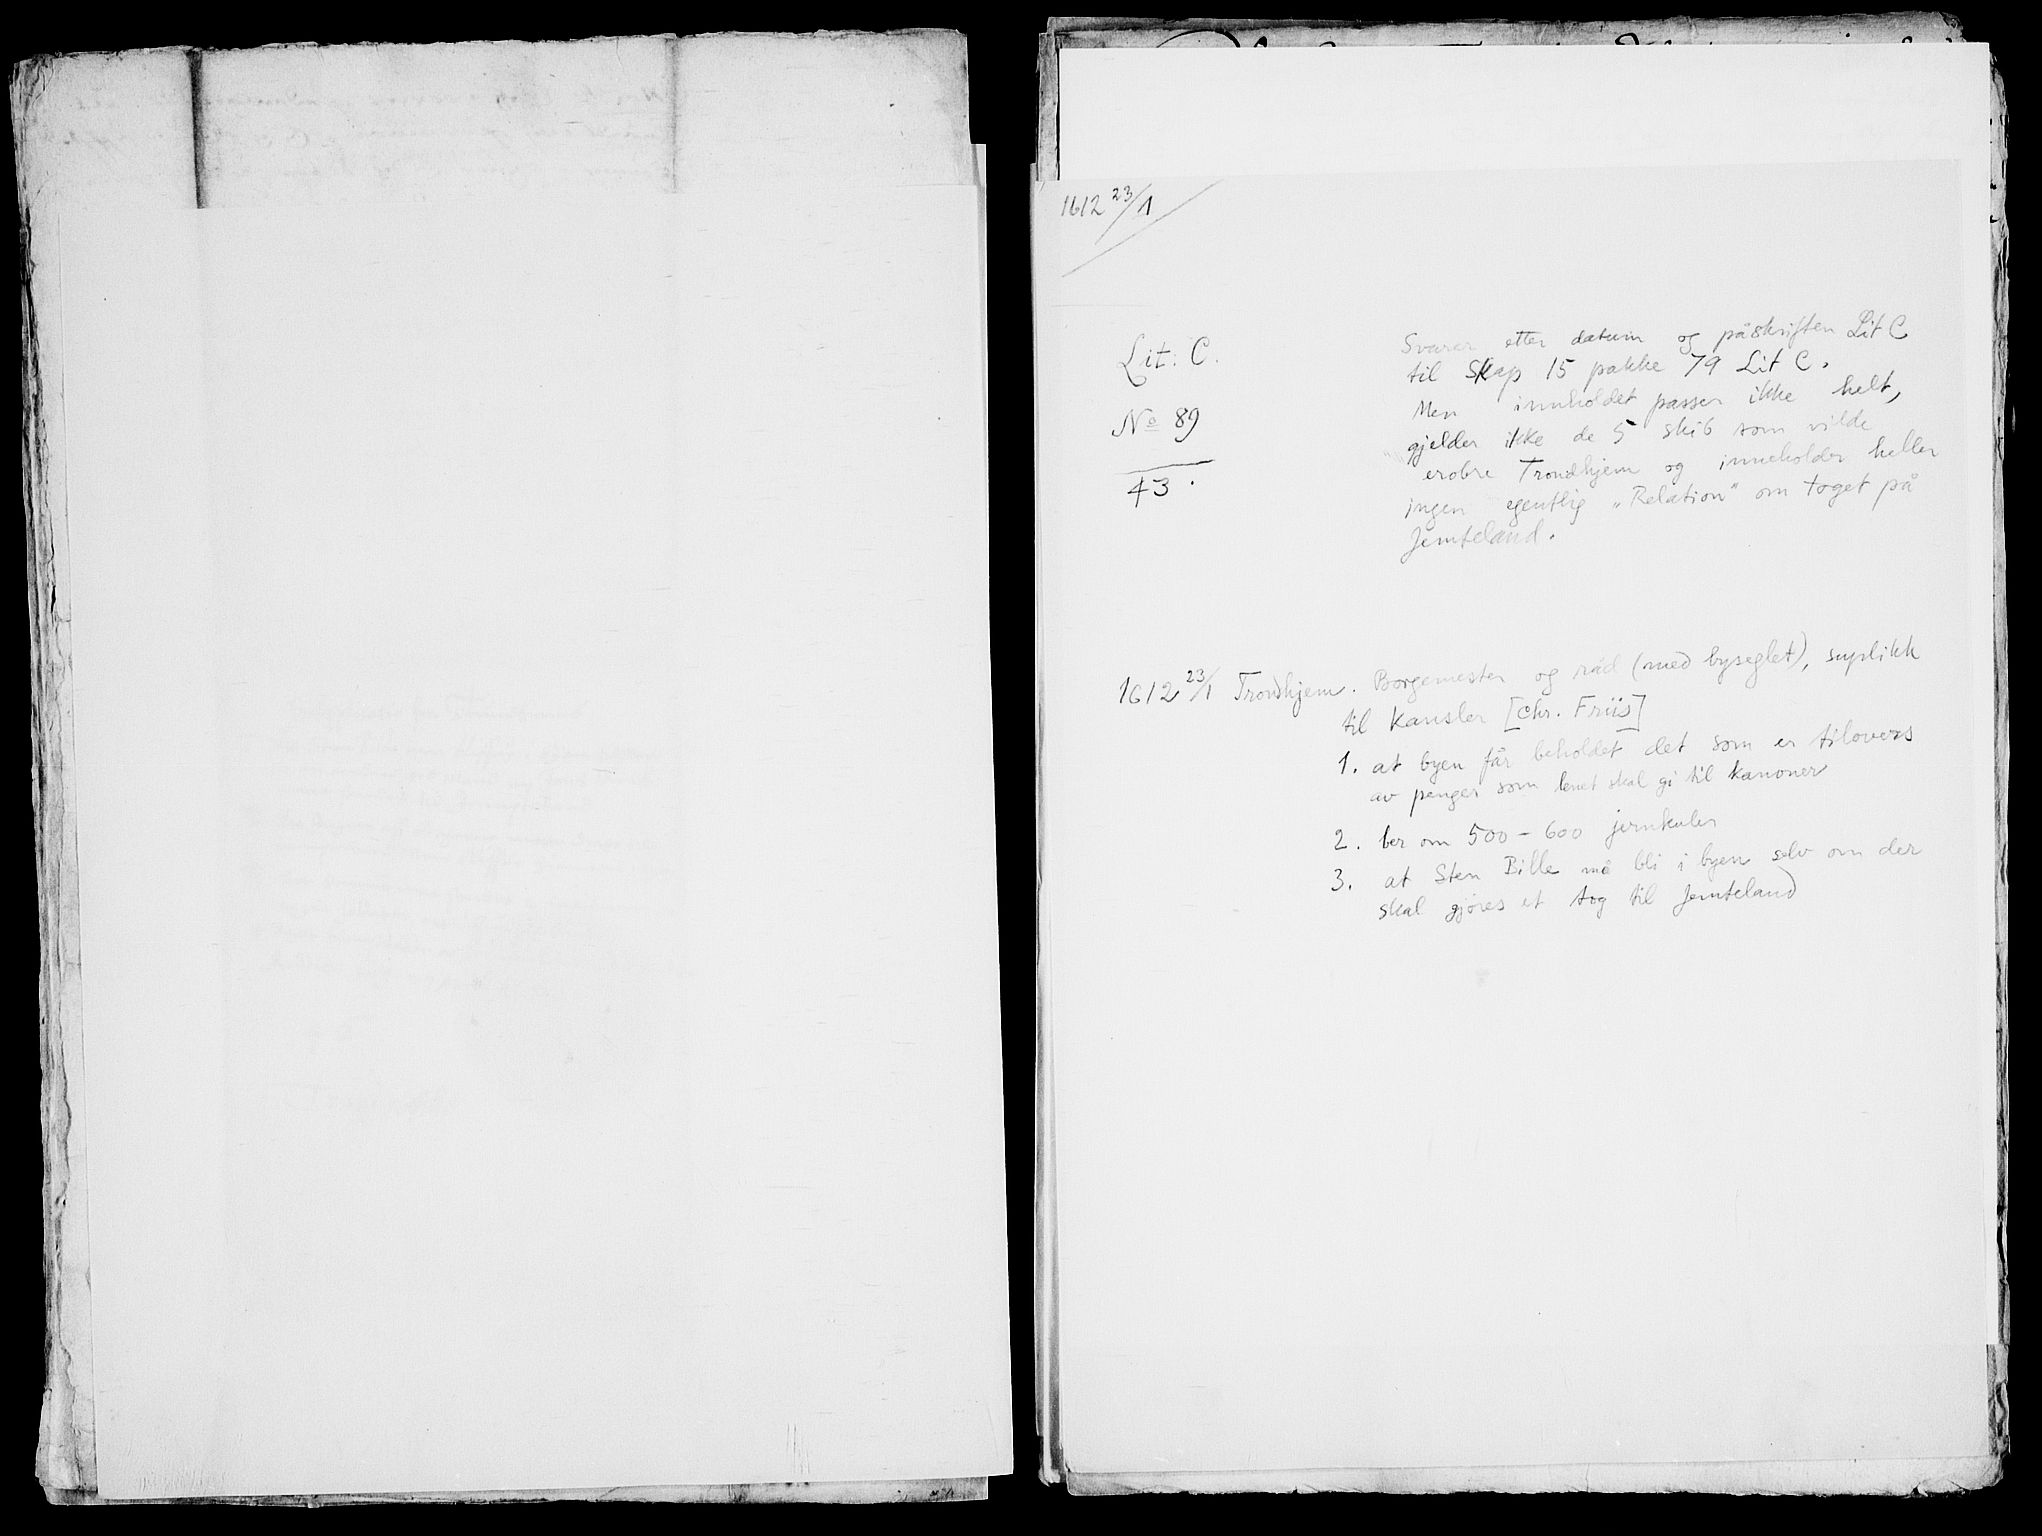 1612 23/1
Lit. C.
No 89
43.
Svarer etter datum og påskriften Lit C
til Skap 15 pakke 79 Lit C.
Men innholdet passer ikke helt,
gjelder ikke de 5 skib som vilde
erobre Trondhjem og inneholder heller
ingen egentlig „Relation" om toget på
Jemteland.
1612 23/1 Trondhjem. Borgemester og råd (med byseglet), suplikk
til kansler [Chr. Friis]
1. at byen får beholdet det som er tilovers
av penger som lenet skal gi til kanoner
2. ber om 500 - 600 jernkuler
3. at Sten Bille må bli i byen selv om der
skal gjøres et tog til Jemteland